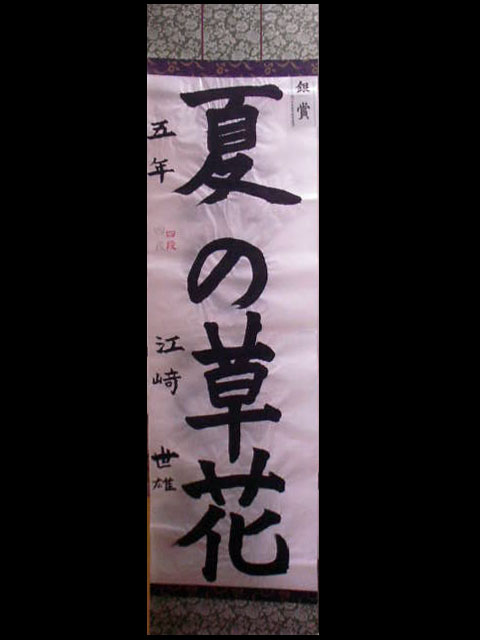 銀賞
夏の草花
五年
四段
江﨑世雄